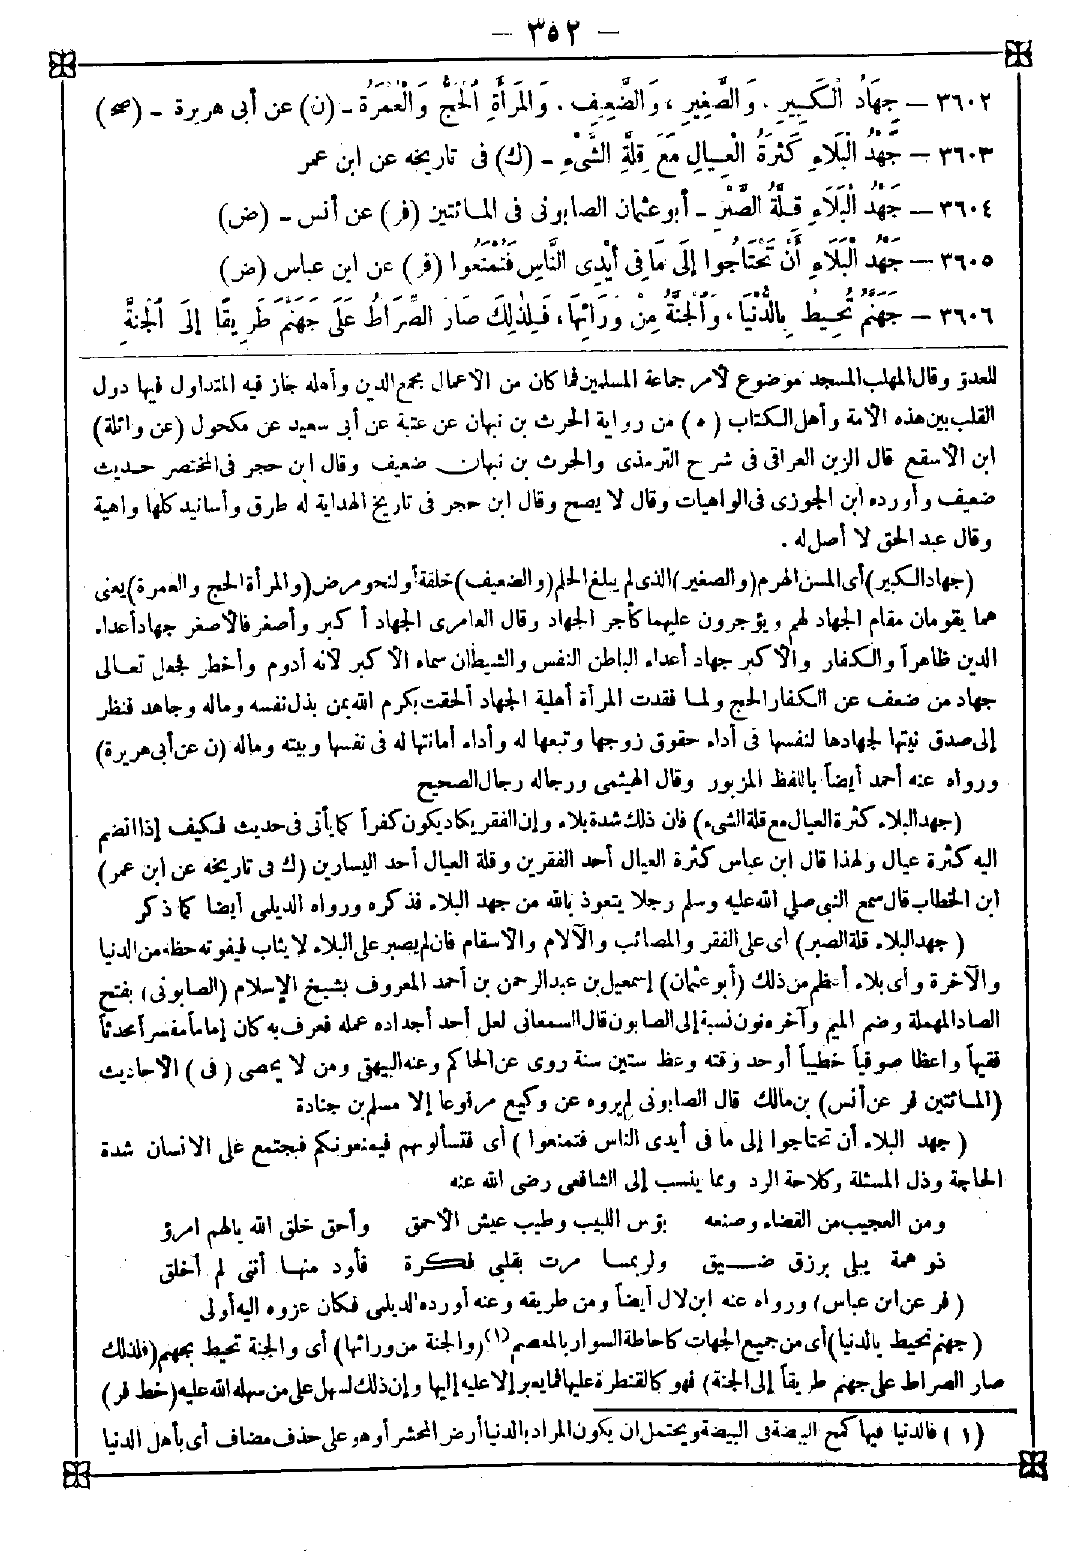 — ٣٥٢ —
٣٦٠٢ — جِهَادُ الْكَبِيرِ، وَالصَّغِيرِ، وَالضَّعِيفِ، وَالْمَرْأَةِ الْحَجُّ وَالْعُمْرَةُ - (ن) عن أبى هريرة - (صح)
٣٦٠٣ — جَهْدُ الْبَلَاءِ كَثْرَةُ الْعِيَالِ مَعَ قِلَّةِ الشَّيْءِ - (ك) فى تاريخه عن ابن عمر
٣٦٠٤ — جَهْدُ الْبَلَاءِ قِلَّةُ الصَّبْرِ - أبو عثمان الصابونى فى المائتين (فر) عن أنس - (ض)
٣٦٠٥ — جَهْدُ الْبَلَاءِ أَنْ تَحْتَاجُوا إِلَى مَا فِى أَيْدِى النَّاسِ فَتُمْنَعُوا (فر) عن ابن عباس (ض)
٣٦٠٦ — جَهَنَّمُ تُحِيطُ بِالدُّنْيَا، وَالْجَنَّةُ مِنْ وَرَائِهَا، فَلِذٰلِكَ صَارَ الصِّرَاطُ عَلَى جَهَنَّمَ طَرِيقًا إِلَى الْجَنَّةِ
للعدو وقال المهلب المسجد موضوع لأمر جماعة المسلمين فما كان من الأعمال يجمع الدين وأهله جاز فيه المتداول فيها دول
القلب بين هذه الأمة وأهل الكتاب (ه) من رواية الحرث بن نبهان عن عتبة عن أبى سعيد عن مكحول (عن واثلة)
ابن الأسقع قال الزين العراقى فى شرح الترمذى والحرث بن نبهان ضعيف وقال ابن حجر فى المختصر حديث
ضعيف وأورده ابن الجوزى فى الواهيات وقال لا يصح وقال ابن حجر فى تاريخ الهداية له طرق وأسانيد كلها واهية
وقال عبد الحق لا أصل له .
(جهاد الكبير) أى المسن الهرم (والصغير) الذى لم يبلغ الحلم (والضعيف) خلقة أو لنحو مرض (والمرأة الحج والعمرة) يعنى
هما يقومان مقام الجهاد لهم ويؤجرون عليهما كأجر الجهاد وقال العامرى الجهاد أكبر وأصغر فالأصغر جهاد أعداء
الدين ظاهراً والكفار والأكبر جهاد أعداء الباطن النفس والشيطان سماه الأكبر لأنه أدوم وأخطر فجعل تعالى
جهاد من ضعف عن الكفار الحج ولما فقدت المرأة أهلية الجهاد ألحقت بكرم الله بمن بذل نفسه وماله وجاهد فنظر
إلى صدق نيتها لجهادها لنفسها فى أداء حقوق زوجها وتبعها له وأداء أمانتها له فى نفسها وبيته وماله (ن عن أبى هريرة)
ورواه عنه أحمد أيضاً باللفظ المزبور وقال الهيثمى ورجاله رجال الصحيح
(جهد البلاء كثرة العيال مع قلة الشىء) فان ذلك شدة بلاء وإن الفقر يكاد يكون كفراً كما يأتى فى حديث فكيف إذا انضم
اليه كثرة عيال ولهذا قال ابن عباس كثرة العيال أحد الفقرين وقلة العيال أحد اليسارين (ك فى تاريخه عن ابن عمر)
ابن الخطاب قال سمع النبى صلى الله عليه وسلم رجلا يتعوذ بالله من جهد البلاء فذكره ورواه الديلمى أيضا كما ذكر
(جهد البلاء قلة الصبر) أى على الفقر والمصائب والآلام والأسقام فان لم يصبر على البلاء لا يثاب فيفوته حظه من الدنيا
والآخرة وأى بلاء أعظم من ذلك (أبو عثمان) إسمعيل بن عبد الرحمن بن أحمد المعروف بشيخ الإسلام (الصابونى) بفتح
الصاد المهملة وضم الميم وآخره نون نسبة إلى الصابون قال السمعانى لعل أحد أجداده عمله فعرف به كان إماماً مفسراً محدثاً
فقيهاً واعظا صوفياً خطيباً أوحد وقته وعظ ستين سنة روى عن الحاكم وعنه البيهقى ومن لا يحصى (فى) الأحاديث
(المائتين فر عن أنس) بن مالك قال الصابونى لم يروه عن وكيع مرفوعا إلا مسلم بن جنادة
(جهد البلاء أن تحتاجوا إلى ما فى أيدى الناس فتمنعوا) أى فتسألوهم فيمنعونكم فيجتمع على الانسان شدة
الحاجة وذل المسئلة وكلاحة الرد ومما ينسب إلى الشافعى رضى الله عنه
ومن العجيب من القضاء وصنعه بؤس اللبيب وطيب عيش الأحمق وأحق خلق الله بالهم امرؤ
ذو همة يبلى برزق ضيق ولربما مرت بقلبى فكرة فأود منها أننى لم أخلق
(فر عن ابن عباس) ورواه عنه ابن لال أيضاً ومن طريقه وعنه أورده الديلمى فكان عزوه اليه أولى
(جهنم تحيط بالدنيا) أى من جميع الجهات كاحاطة السوار بالمعصم (١) (والجنة من ورائها) أى والجنة تحيط بجهنم (فلذلك
صار الصراط على جهنم طريقاً إلى الجنة) فهو كالقنطرة عليها فما يعبر إلا عليه إليها وإن ذلك لسهل على من سهله الله عليه (خط فر)
(١) فالدنيا فيها كمح البيضة فى البيضة ويحتمل ان يكون المراد بالدنيا أرض المحشر أو هو على حذف مضاف أى بأهل الدنيا